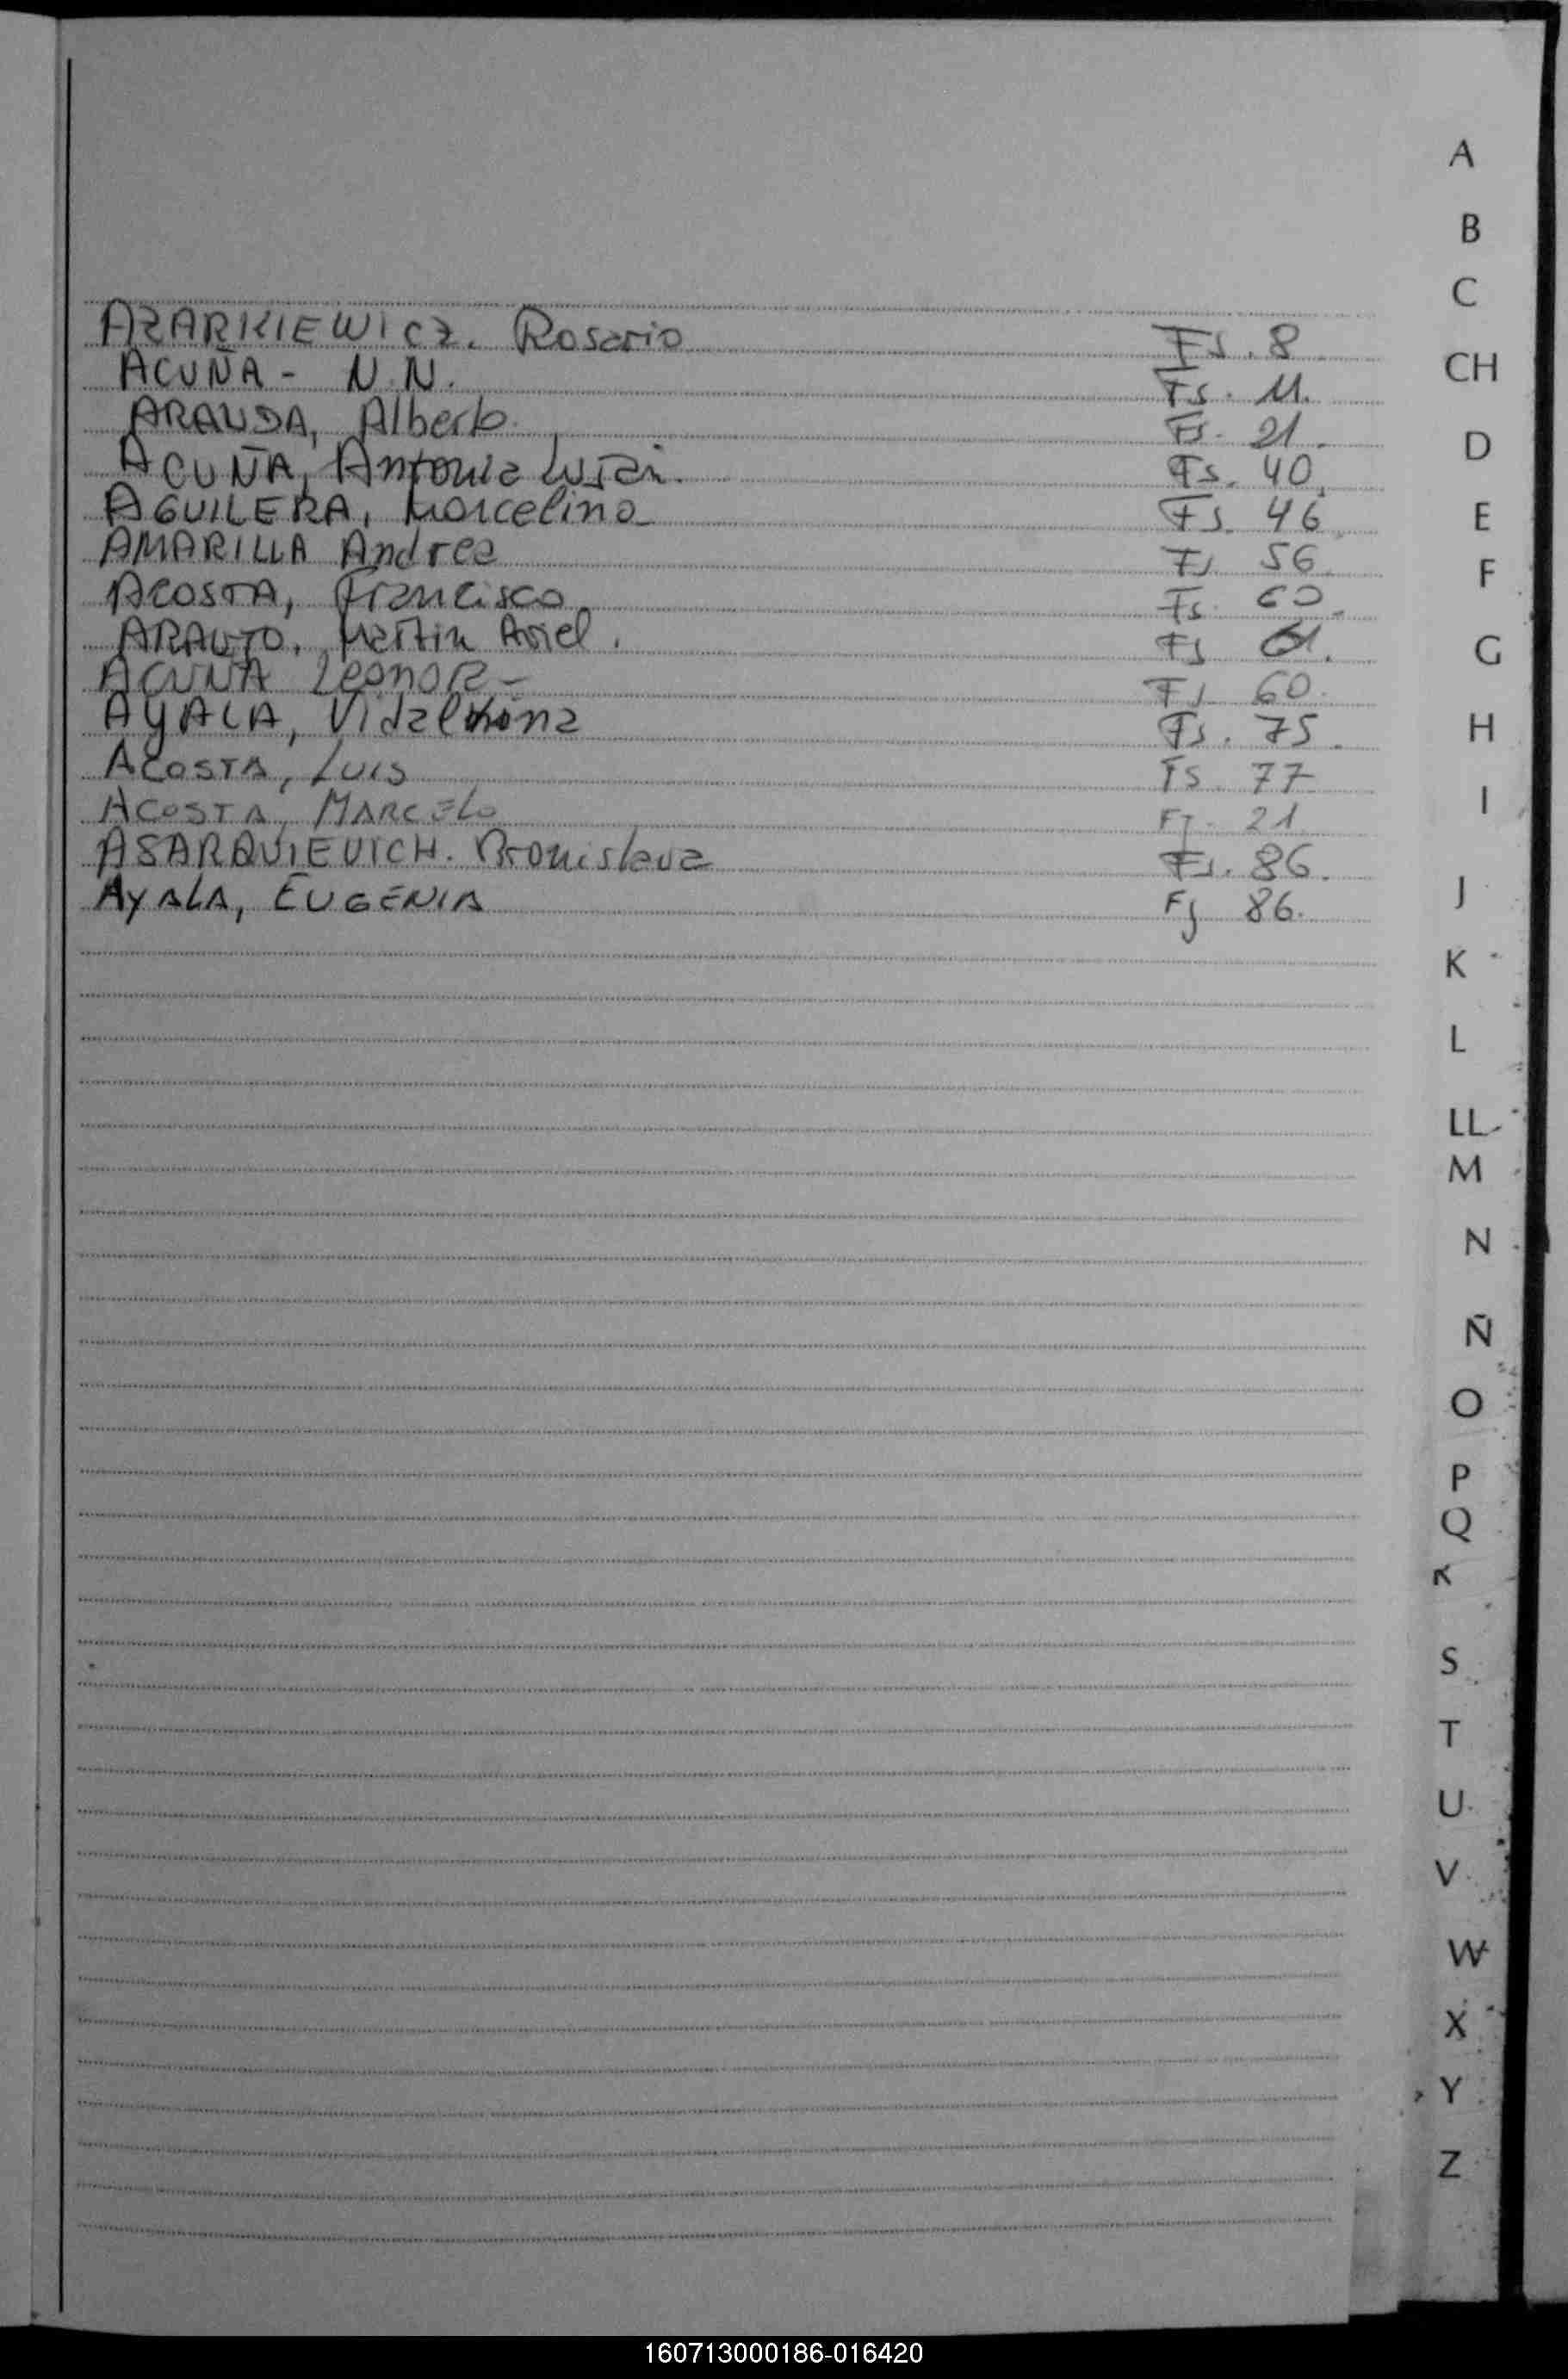 AZARKIEWICZ. Rosario Fs. 8
ACUÑA - N.N. Fs. 11.
ARAUDA, Alberto. Fs. 21.
ACUÑA, Antonia Fs. 40.
AGUILERA, Marcelino Fs. 46.
AMARILLA Andrea Fs 56.
ACOSTA, Francisco Fs. 60.
ARAUJO, Martin Ariel. Fs 61.
ACUÑA Leonor - Fs 60.
AYALA, Vidalmina Fs. 75.
ACOSTA, LUIS FS. 77
ACOSTA, MARCELO Fj. 21
ASARQUIEVICH. Bronislava Fs. 86.
AYALA, EUGENIA Fj 86.
A
B
C
CH
D
E
F
G
H
I
J
K
L
LL
M
N
Ñ
O
P
Q
R
S
T
U
V
W
X
Y
Z
160713000186-016420